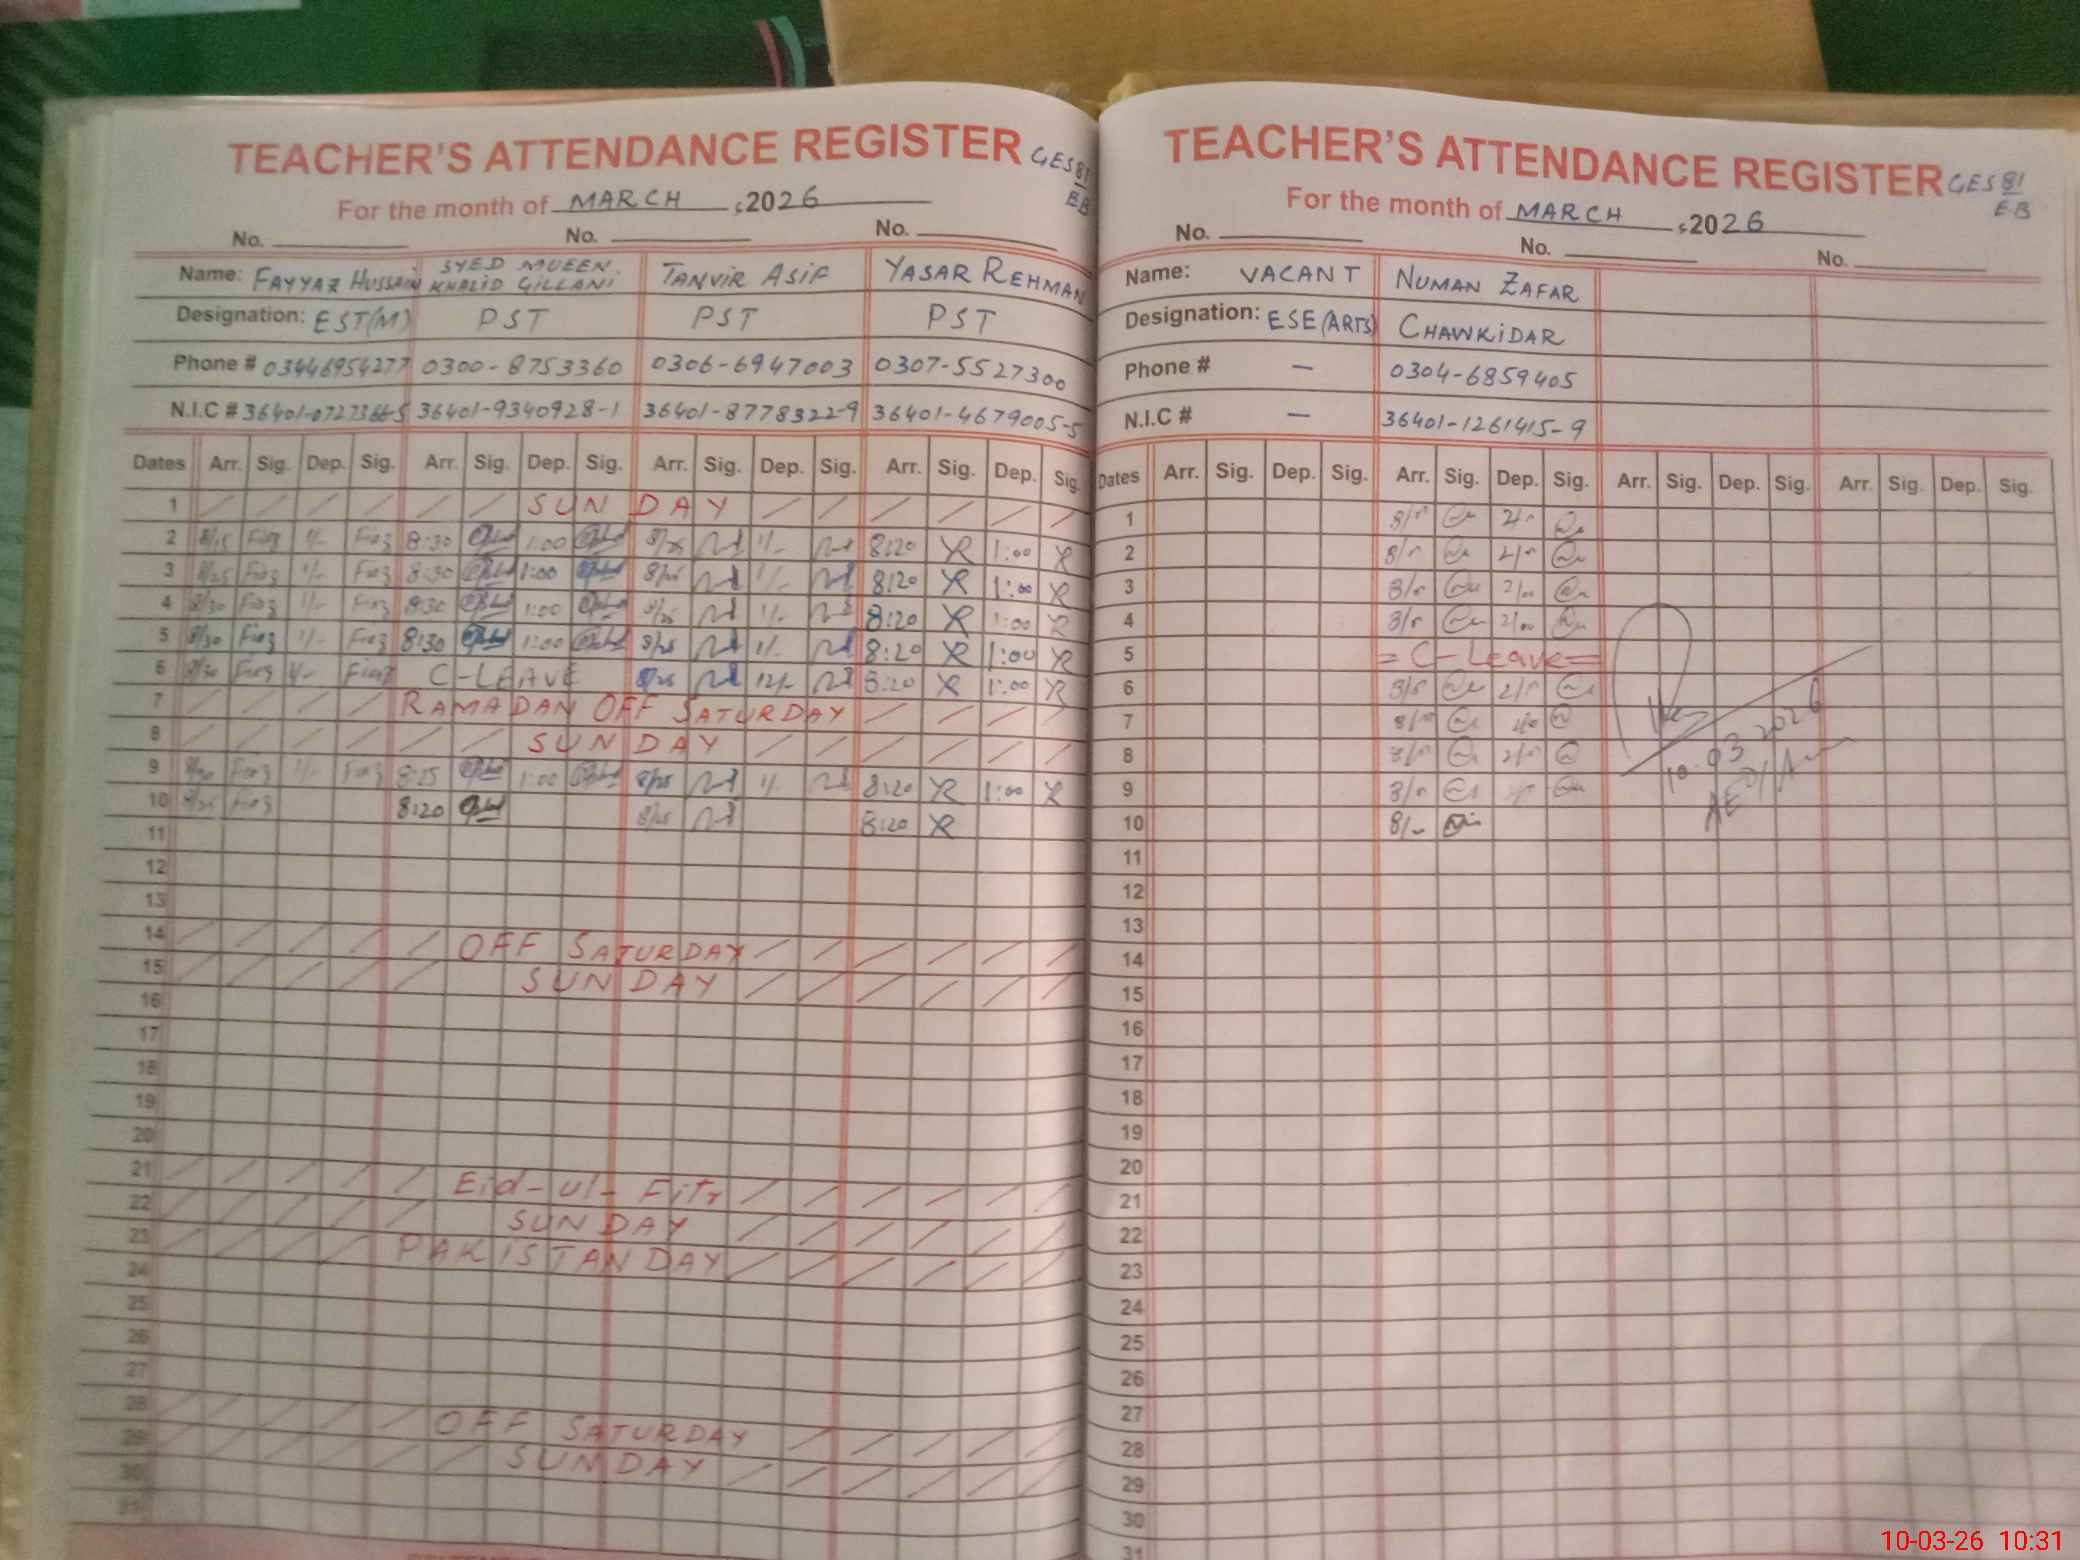 TEACHER'S ATTENDANCE REGISTER GES 81/EB
For the month of MARCH, 2026
No. No. No.
Name: FAYYAZ HUSSAIN SYED MUEEN KHALID GILLANI TANVIR ASIF YASAR REHMAN
Designation: EST(M) PST PST PST
Phone # 03446954277 0300-8753360 0306-6947003 0307-5527300
N.I.C # 36401-9340928-1 36401-8778322-9 36401-4679005-5
Dates Arr. Sig. Dep. Sig. Arr. Sig. Dep. Sig. Arr. Sig. Dep. Sig. Arr. Sig. Dep. Sig.
1 SUNDAY
2 8/15 1/- 8:30 1:00 8/25 1/- 8:20 1:00
3 8/25 1/- 8:30 1:00 8/25 1/- 8:20 1:00
4 8/30 1/- 8:30 1:00 8/25 1/- 8:20 1:00
5 8/30 1/- 8:30 1:00 8/25 1/- 8:20 1:00
6 8/30 C-LEAVE 8/25 12/- 8:20 1:00
7 RAMADAN OFF SATURDAY
8 SUNDAY
9 8/30 1/- 8:25 1:00 8/25 1/- 8:20 1:00
10 8/25 8:20 8/25 8:20
11
12
13
14 OFF SATURDAY
15 SUNDAY
16
17
18
19
20
21 Eid-ul-Fitr
22 SUNDAY
23 PAKISTAN DAY
24
25
26
27
28 OFF SATURDAY
29 SUNDAY
30
31
TEACHER'S ATTENDANCE REGISTER GES 81/EB
For the month of MARCH, 2026
No. No. No.
Name: VACANT NUMAN ZAFAR
Designation: ESE (ARTS) CHAWKIDAR
Phone # — 0304-6859405
N.I.C # — 36401-1261415-9
Dates Arr. Sig. Dep. Sig. Arr. Sig. Dep. Sig. Arr. Sig. Dep. Sig. Arr. Sig. Dep. Sig.
1
2
3
4
5 = C-Leave =
6
7
8
9
10
10.03.2026
11
12
13
14
15
16
17
18
19
20
21
22
23
24
25
26
27
28
29
30
31
10-03-26 10:31